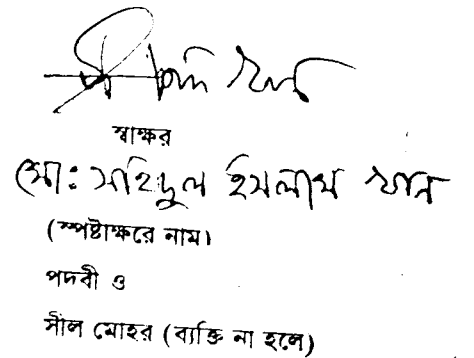 স্বাক্ষর
মোঃ সহিদুল ইসলাম খান
(স্পষ্টাক্ষরে নাম।
পদবী ও
সীল মোহর (ব্যক্তি না হলে)